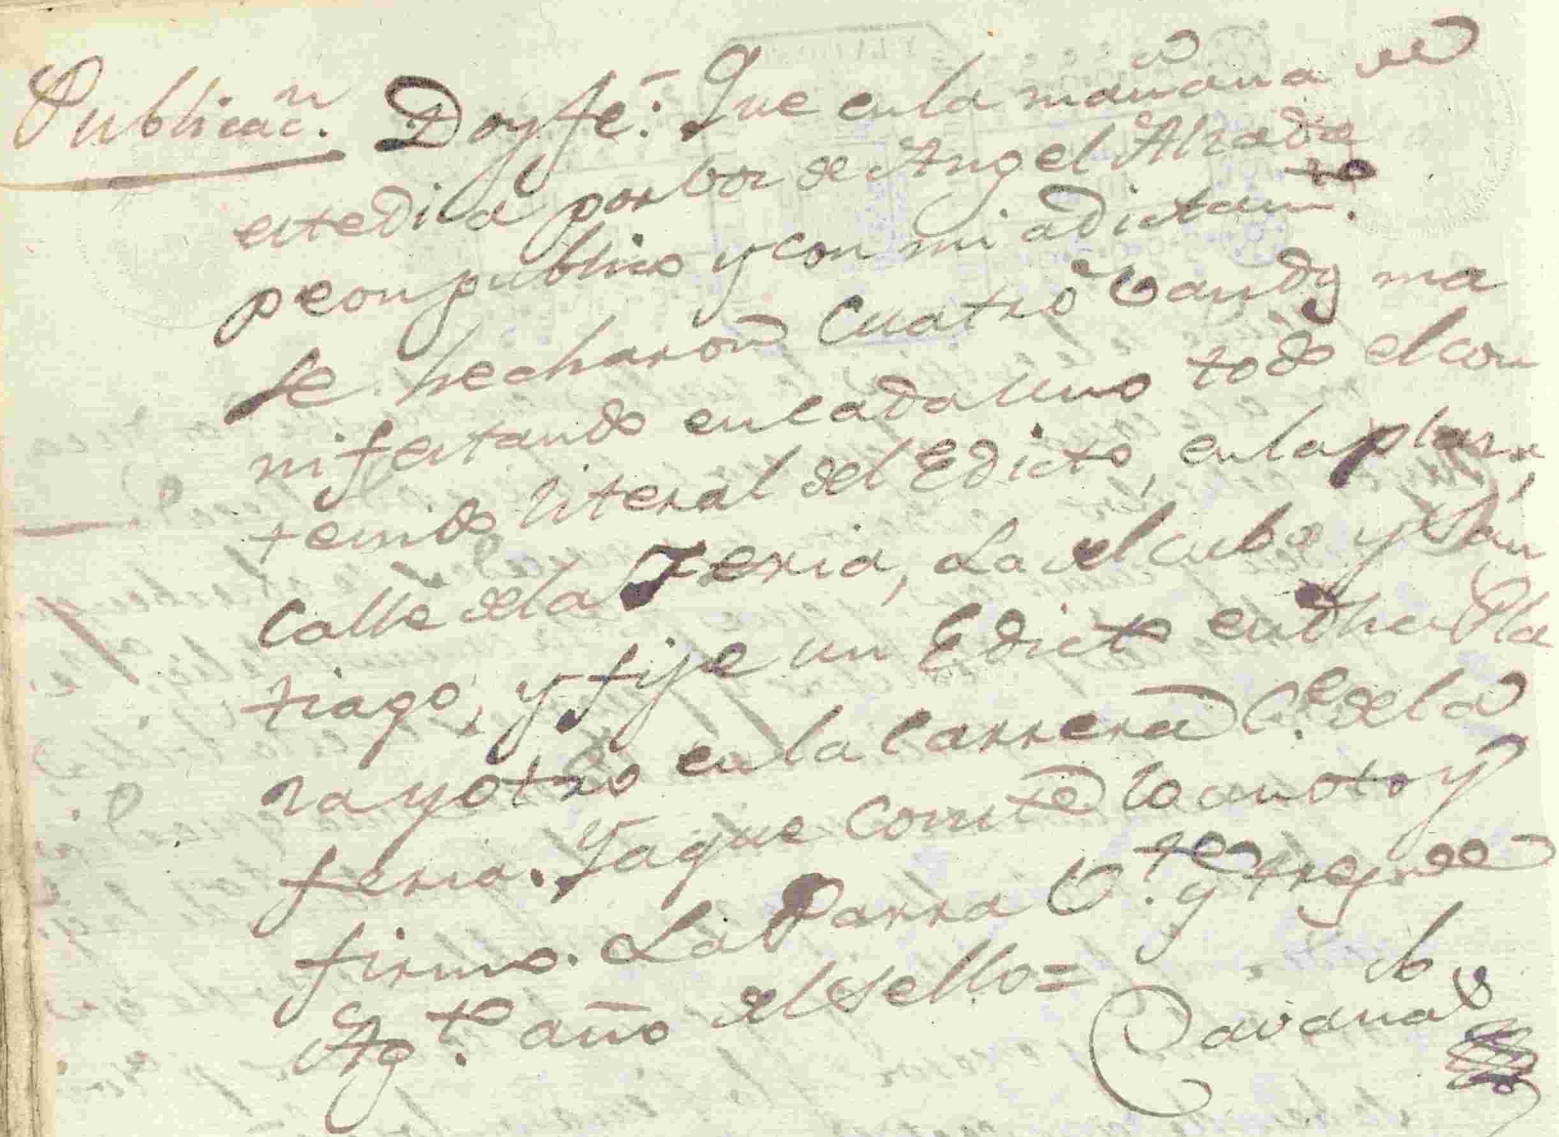 Publicac.n Doy fe: Que en la mañana de
este dia por voz de Angel Alvado
peon publico y con mi adictam.to
se hecharon Cuatro Vandos ma
nifestando en cada uno todo el con
tenido literal del Edicto, en la plaza,
Calle de la Feria, La del cubo y San
tiago, y fije un Edicto en dha Pla
za y otro en la Carrera C.e de la
feria. Y a que conste lo anoto y
firmo. La Parra V.te y tres de
Ag.to año del sello =